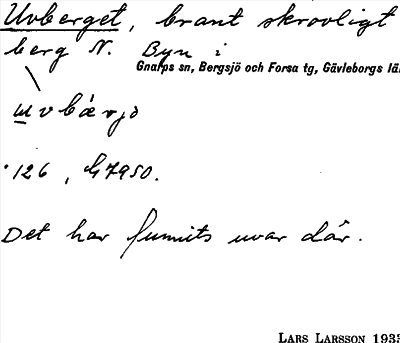 Uvberget, brant skrovligt
berg N. Byn i
Gnarps sn, Bergsjö och Forsa tg, Gävleborgs lä
126, G7950.
Det har funnits uvar där.
LARS LARSSON 1935